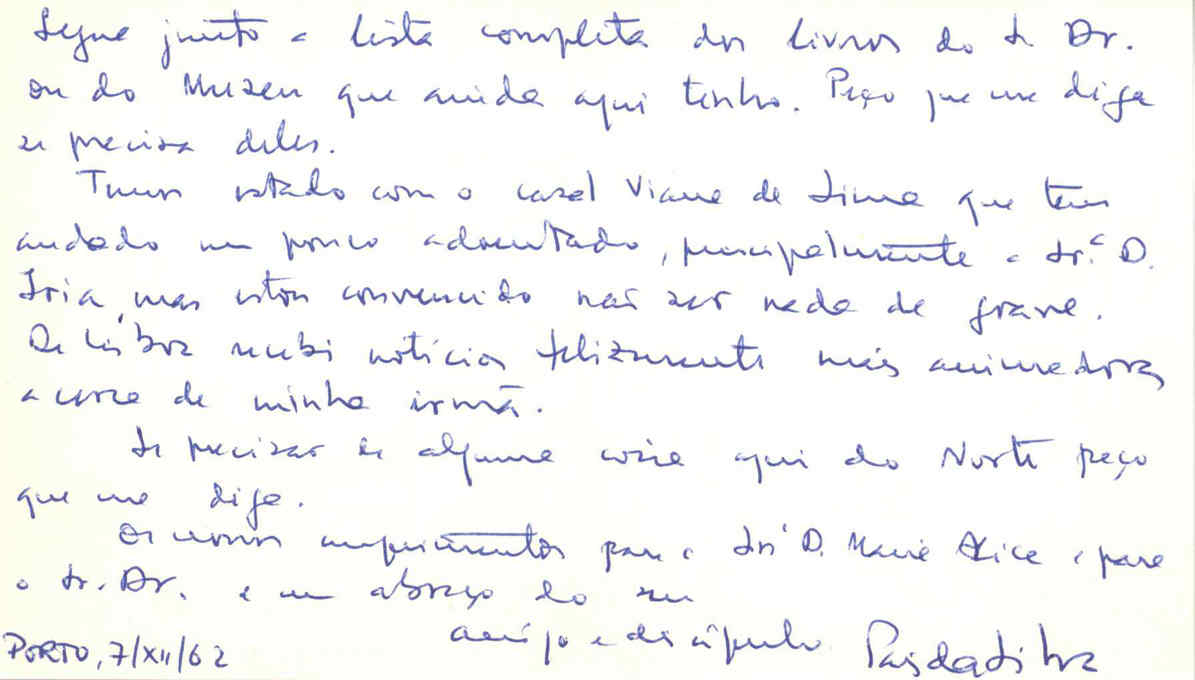 Segue junto a lista completa dos livros do Sr. Dr.
ou do Museu que ainda aqui tenho. Peço que me diga
se precisa deles.
Temos estado com o casal Viana de Lima que tem
andado um pouco adoentado, principalmente a Sr.ª D.
Iria, mas estou convencido não ser nada de grave.
De Lisboa recebi notícias felizmente mais animadoras
acerca de minha irmã.
Se precisar de alguma coisa aqui do Norte peço
que me diga.
Os nossos cumprimentos para a Srª D. Maria Alice e para
o Sr. Dr. e um abraço do seu
amigo e discípulo Pais da Silva
PORTO, 7/XII/62